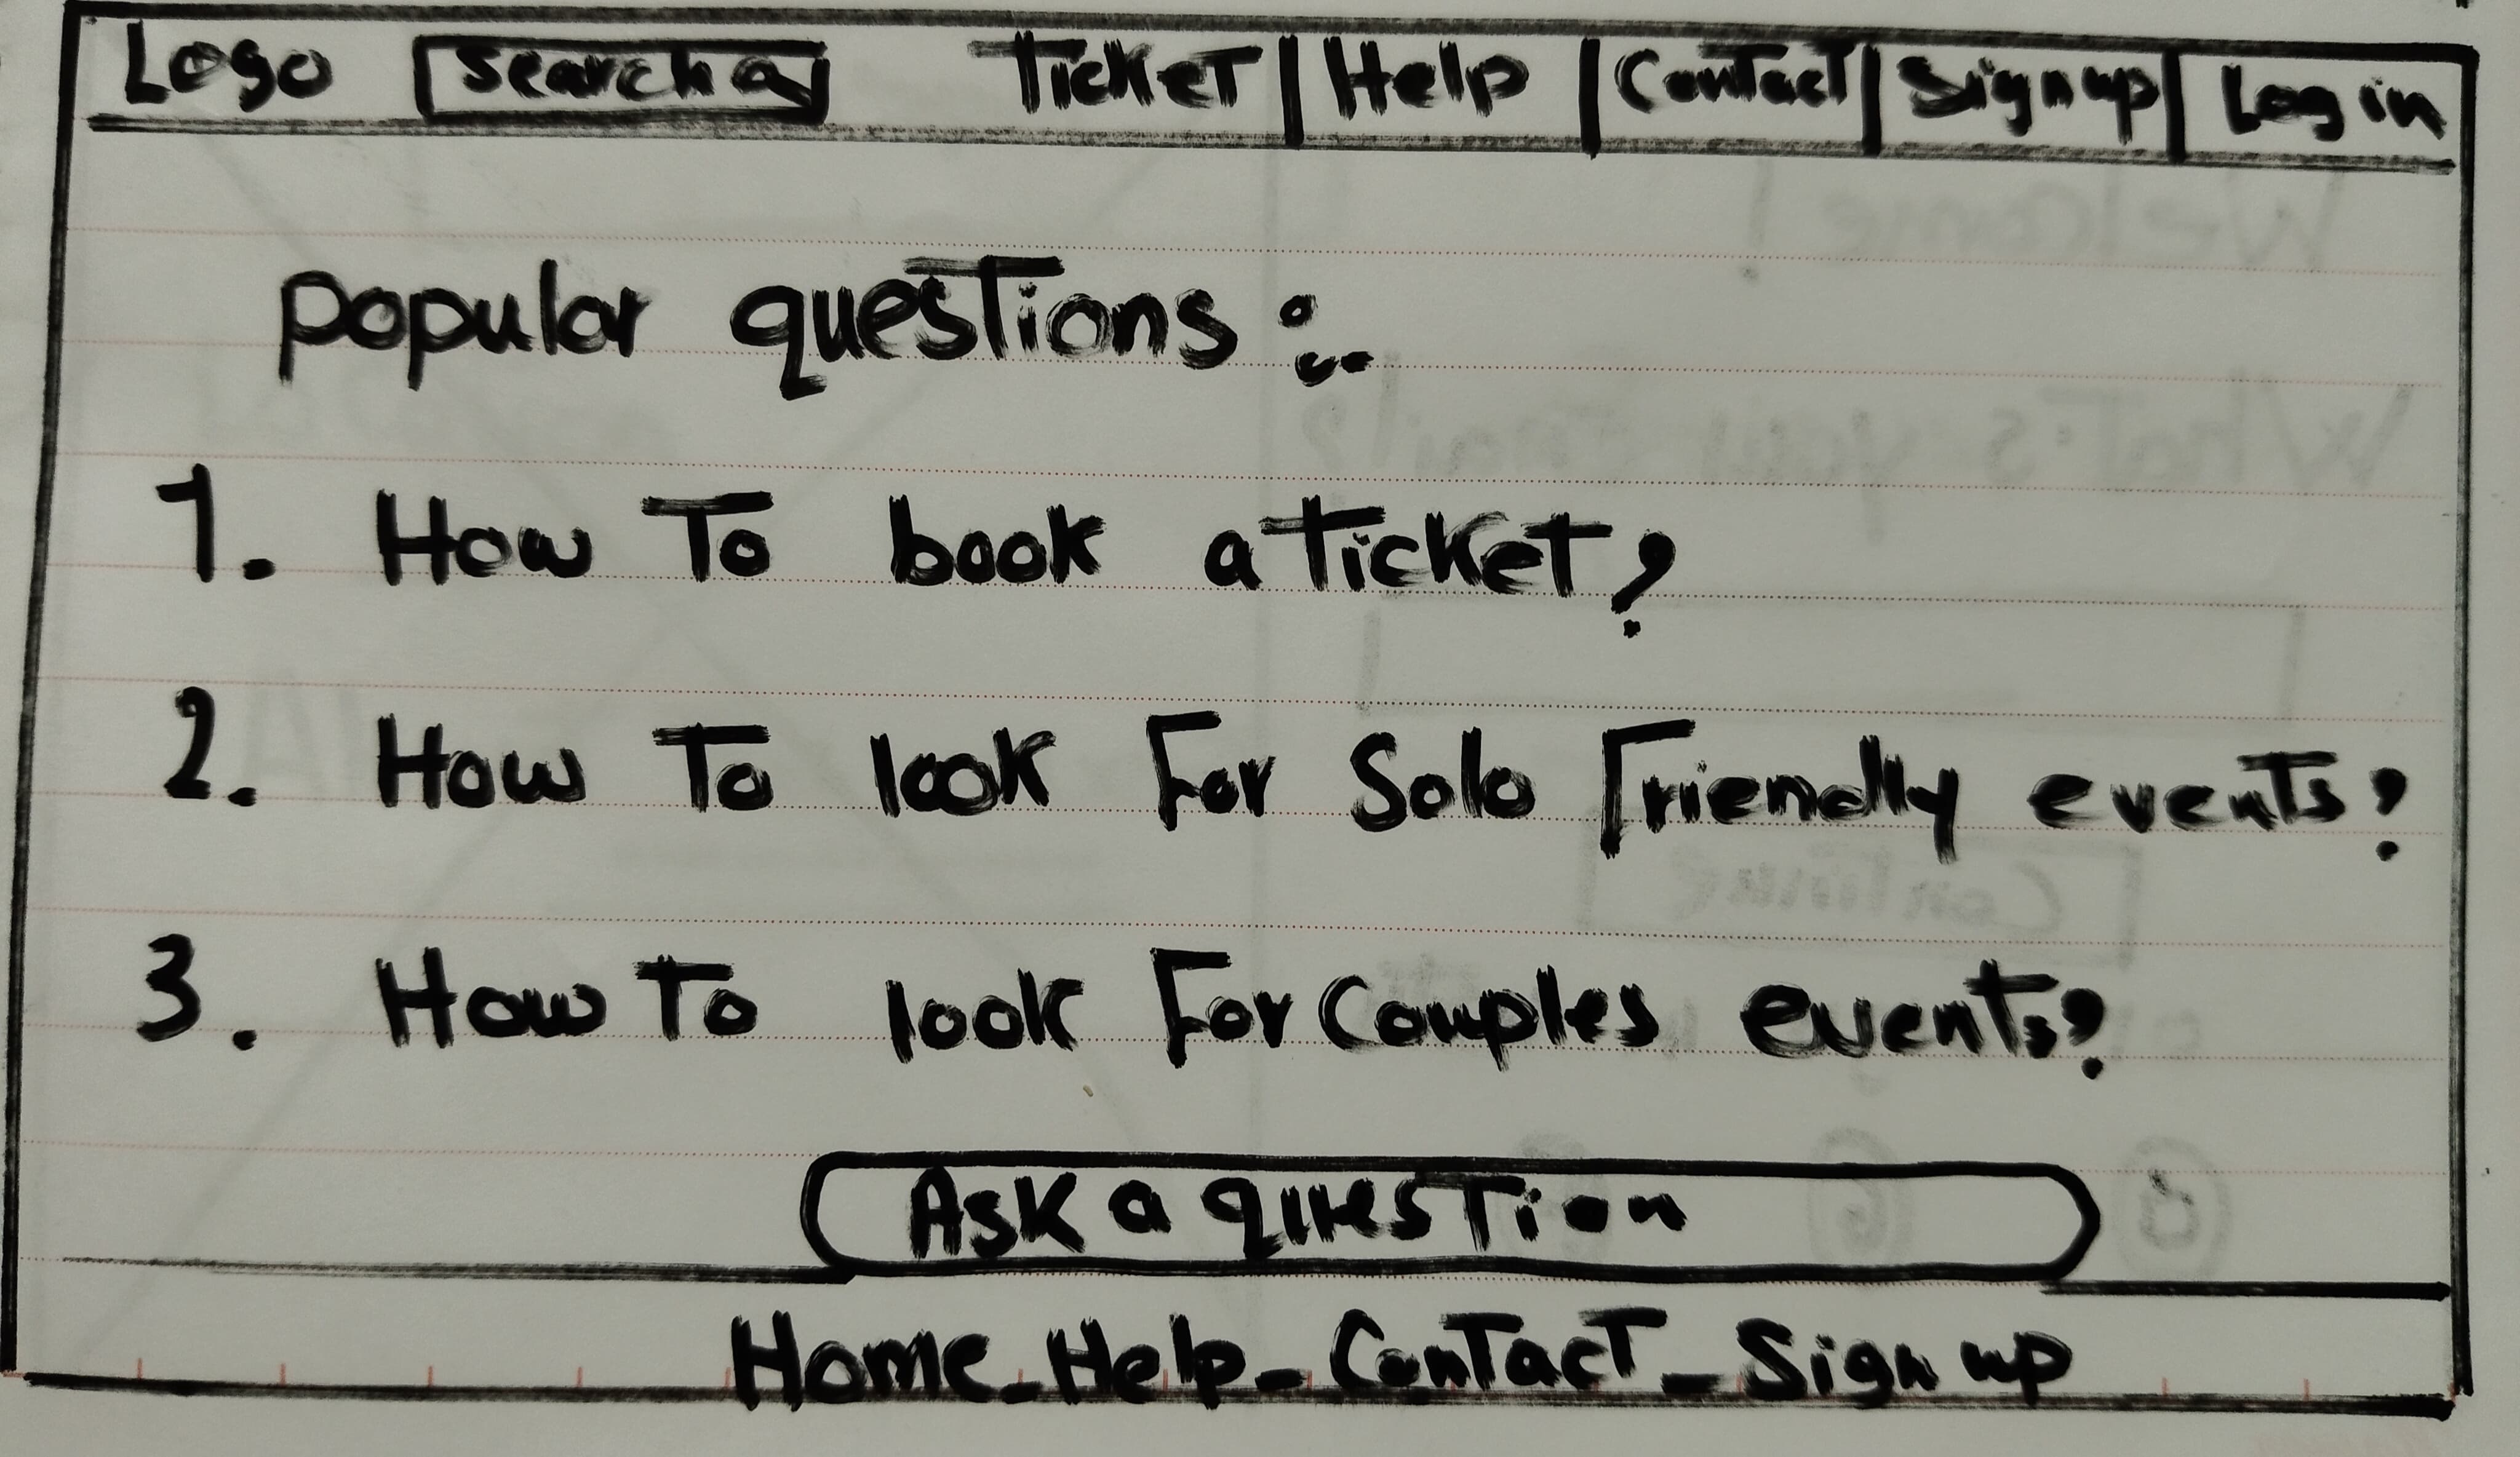 Logo search Ticket | Help | Contact | Sign up | Log in
popular questions :-
1. How To book a Ticket?
2. How To look For Solo Friendly events?
3. How To look For Couples events?
Ask a question
Home - Help - Contact - Sign up